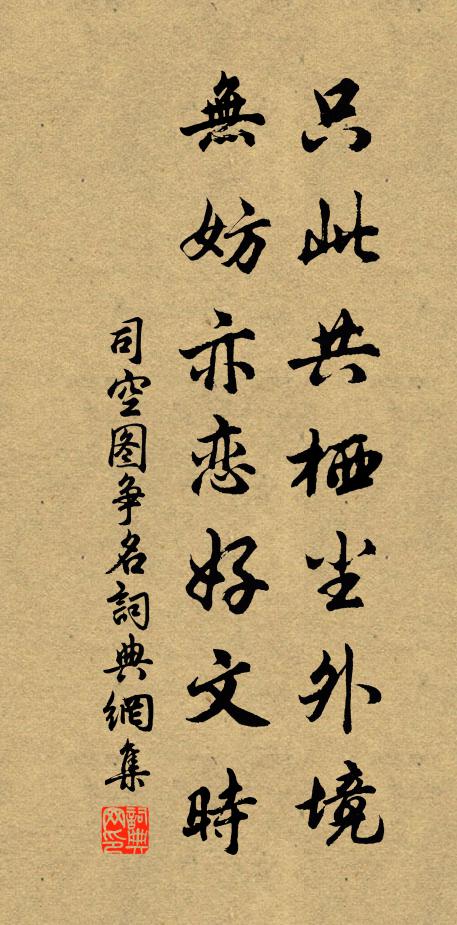 只此共栖尘外境
無妨亦恋好文時
司空图争名詞典網集
詞典网印